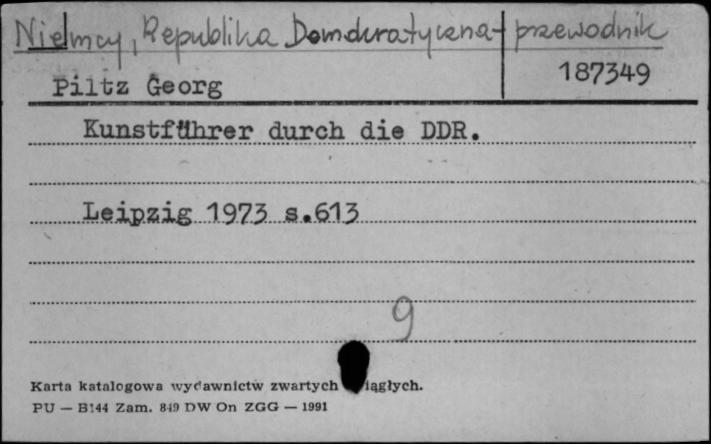 Niemcy, Republika Demokratyczna - przewodnik
Piltz Georg
187349
Kunstführer durch die DDR.
Leipzig 1973 s.613
9
Karta katalogowa wydawnictw zwartych iągłych.
PU — B144 Zam. 849 DW On ZGG — 1991